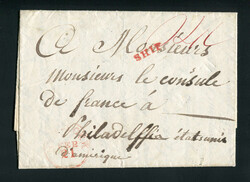 A Monsieurs
Monsieurs le consule
de france à
Philadelffia étatsunis
d'amérique